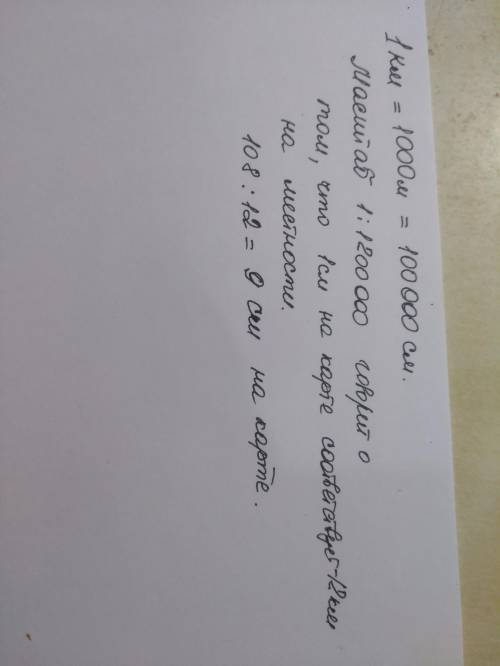 1 км = 1000 м = 100 000 см.
Масштаб 1:1200 000 говорит о
том, что 1см на карте соответствует - 12 км
на местности.
108 : 12 = 9 см на карте.